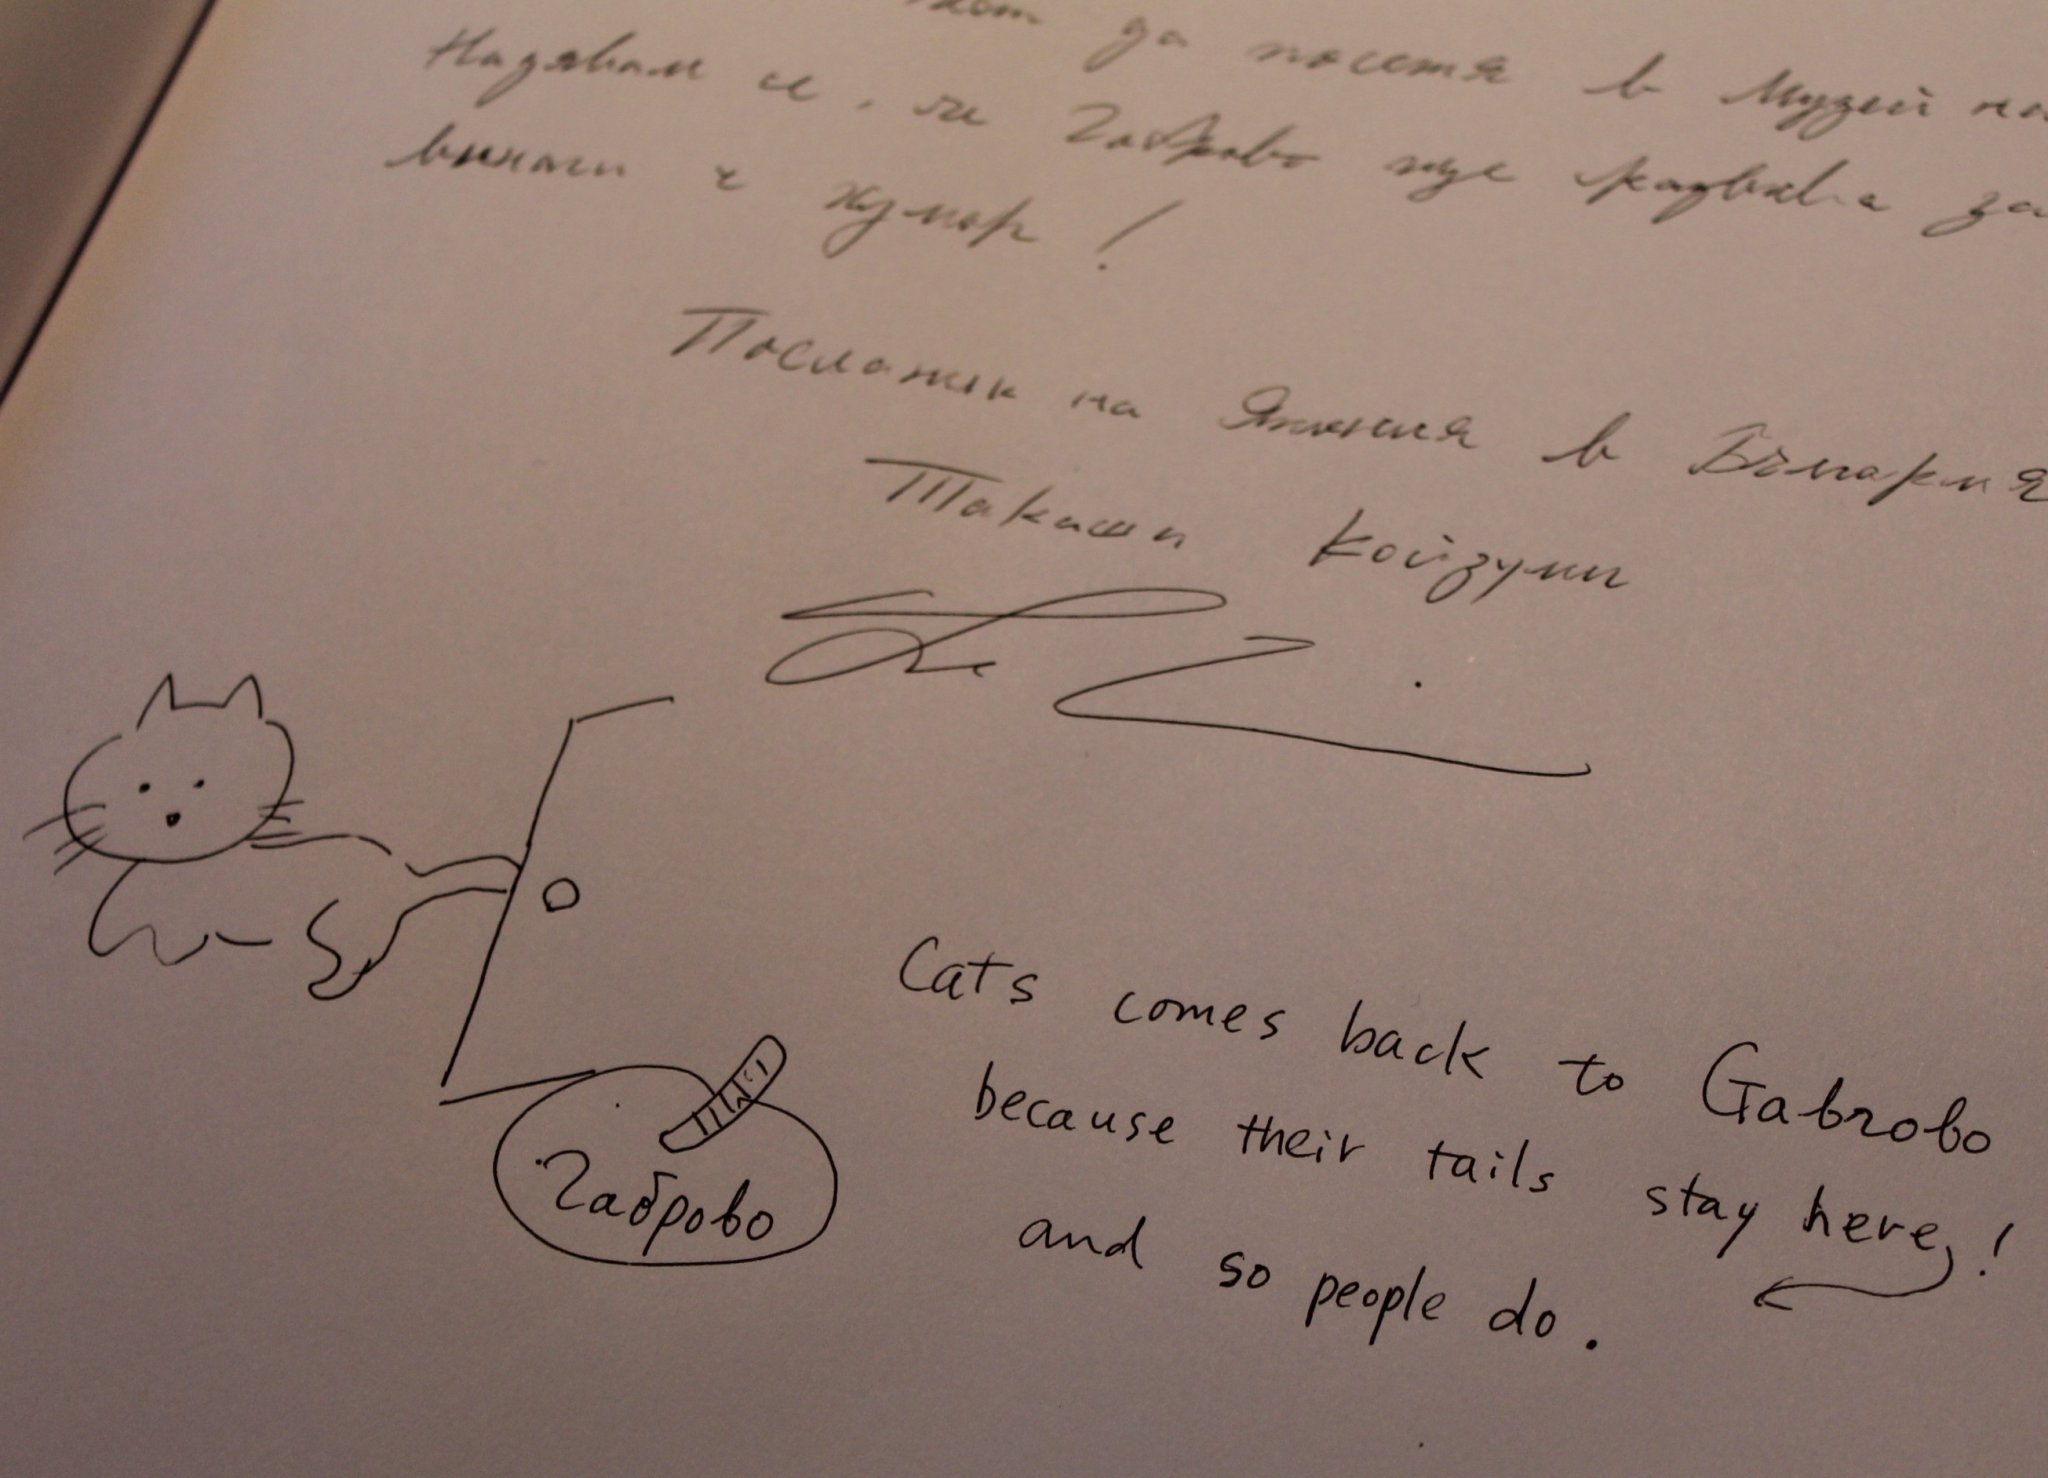 да посетя в Музей на
Надявам се, че Габрово ще развива за
винаги с хумор!
Посланик на Япония в България
Такаши Койзуми
Габрово
Cats comes back to Gabrovo
because their tails stay here!
and so people do.